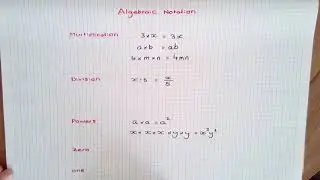 Algebraic Notation
Multiplication 3 × x = 3x
a × b = ab
4 × m × n = 4mn
Division x ÷ 5 = x/5
Powers a × a = a²
x × x × x × y × y = x³y²
Zero
one